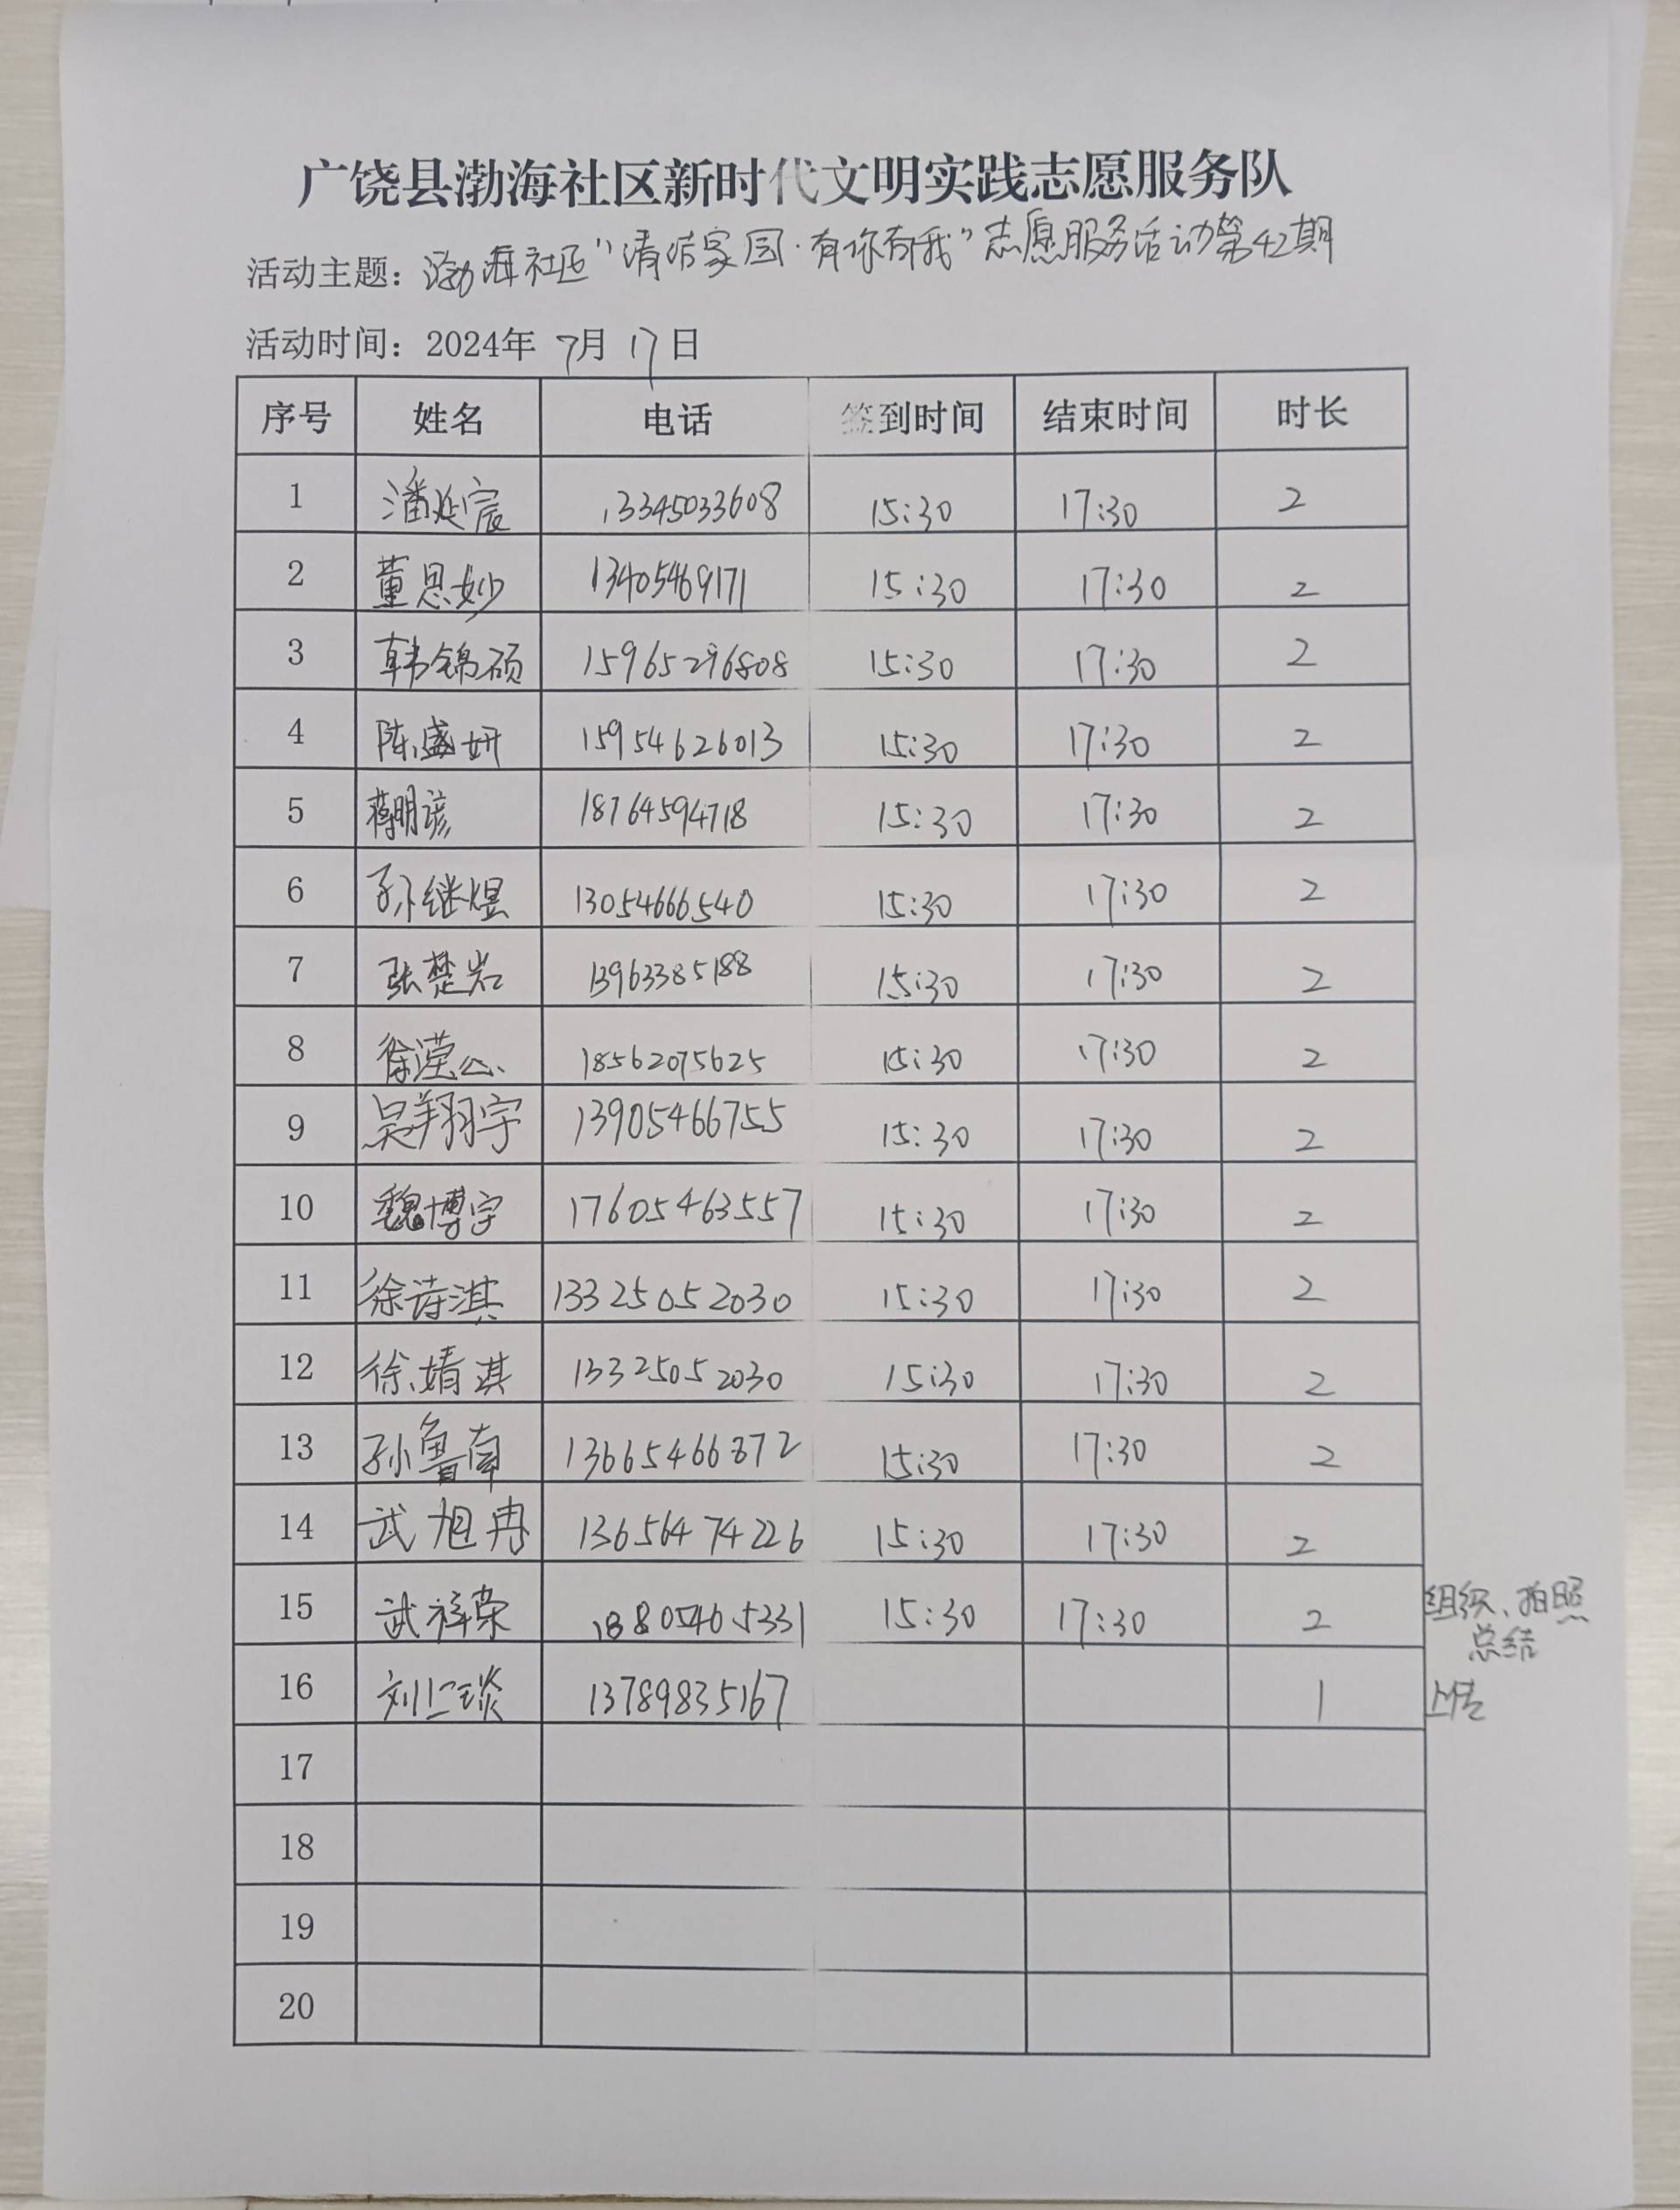 广饶县渤海社区新时代文明实践志愿服务队
活动主题：渤海社区“清洁家园·有你有我”志愿服务活动第42期
活动时间：2024年 7月 17日
序号 姓名 电话 签到时间 结束时间 时长
1 潘延宸 13345033608 15:30 17:30 2
2 董思妙 13405469171 15:30 17:30 2
3 韩锦硕 15965296808 15:30 17:30 2
4 陈盛妍 15954626013 15:30 17:30 2
5 蒋明谚 18764594718 15:30 17:30 2
6 孙继煜 13054666540 15:30 17:30 2
7 张楚岩 13963385188 15:30 17:30 2
8 徐滢 18562075625 15:30 17:30 2
9 吴翔宇 13905466755 15:30 17:30 2
10 魏博宇 17605463557 15:30 17:30 2
11 徐诗淇 13325052030 15:30 17:30 2
12 徐婧淇 13325052030 15:30 17:30 2
13 孙鲁南 13665466872 15:30 17:30 2
14 武旭冉 13656474226 15:30 17:30 2
15 武祥荣 18805465331 15:30 17:30 2 组织、拍照
总结
16 刘仁琰 13789835167 1 上传
17
18
19
20